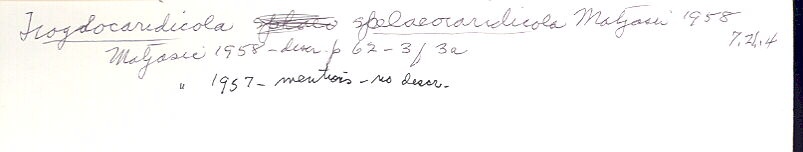 Trogdocaridicola spelaeocaridicola Matjasic 1958
7.21.4
Matjasic 1958 - descr. p 62 - 3 f 3a
" 1957 - mentions - no descr.